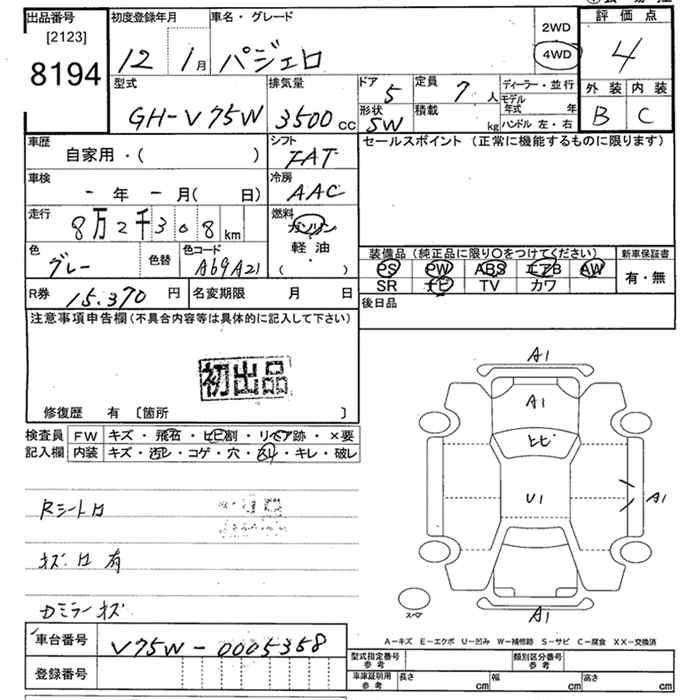 出品番号
[2123]
8194
初度登録年月
12 1月
車名・グレード
パジェロ
2WD
4WD
評価点
4
外装 内装
B C
型式
GH-V75W
排気量
3500 CC
ドア 5
形状 SW
定員 7 人
積載 kg
ディーラー・並行
モデル年式 年
ハンドル 左・右
車歴
自家用・( )
シフト
FAT
セールスポイント (正常に機能するものに限ります)
車検
- 年 - 月( 日)
冷房
AAC
走行
8万2千308 km
燃料
ガソリン
・
軽油
・
( )
色
グレー
色替
色コード
A69A21
装備品 (純正品に限り○をつけてください)
PS PW ABS エアB AW
SR ナビ TV カワ
新車保証書
有・無
R券 15,370 円
名変期限 月 日
後日品
注意事項申告欄(不具合内容等は具体的に記入して下さい)
初出品
修復歴 有 〔箇所 〕
検査員
記入欄
FW キズ・飛石・ヒビ割・リペア跡・×要
内装 キズ・汚レ・コゲ・穴・・キレ・破レ
Rシート
有
Dミラーキズ
A1
A1
ヒビ
U1
A1
A1
スペア
A-キズ E-エクボ U-凹み W-補修跡 S-サビ C-腐食 XX-交換済
車台番号
V75W-0005358
登録番号
型式指定番号
参考
類別区分番号
参考
車庫証明用
参考
長さ cm
幅 cm
高さ cm